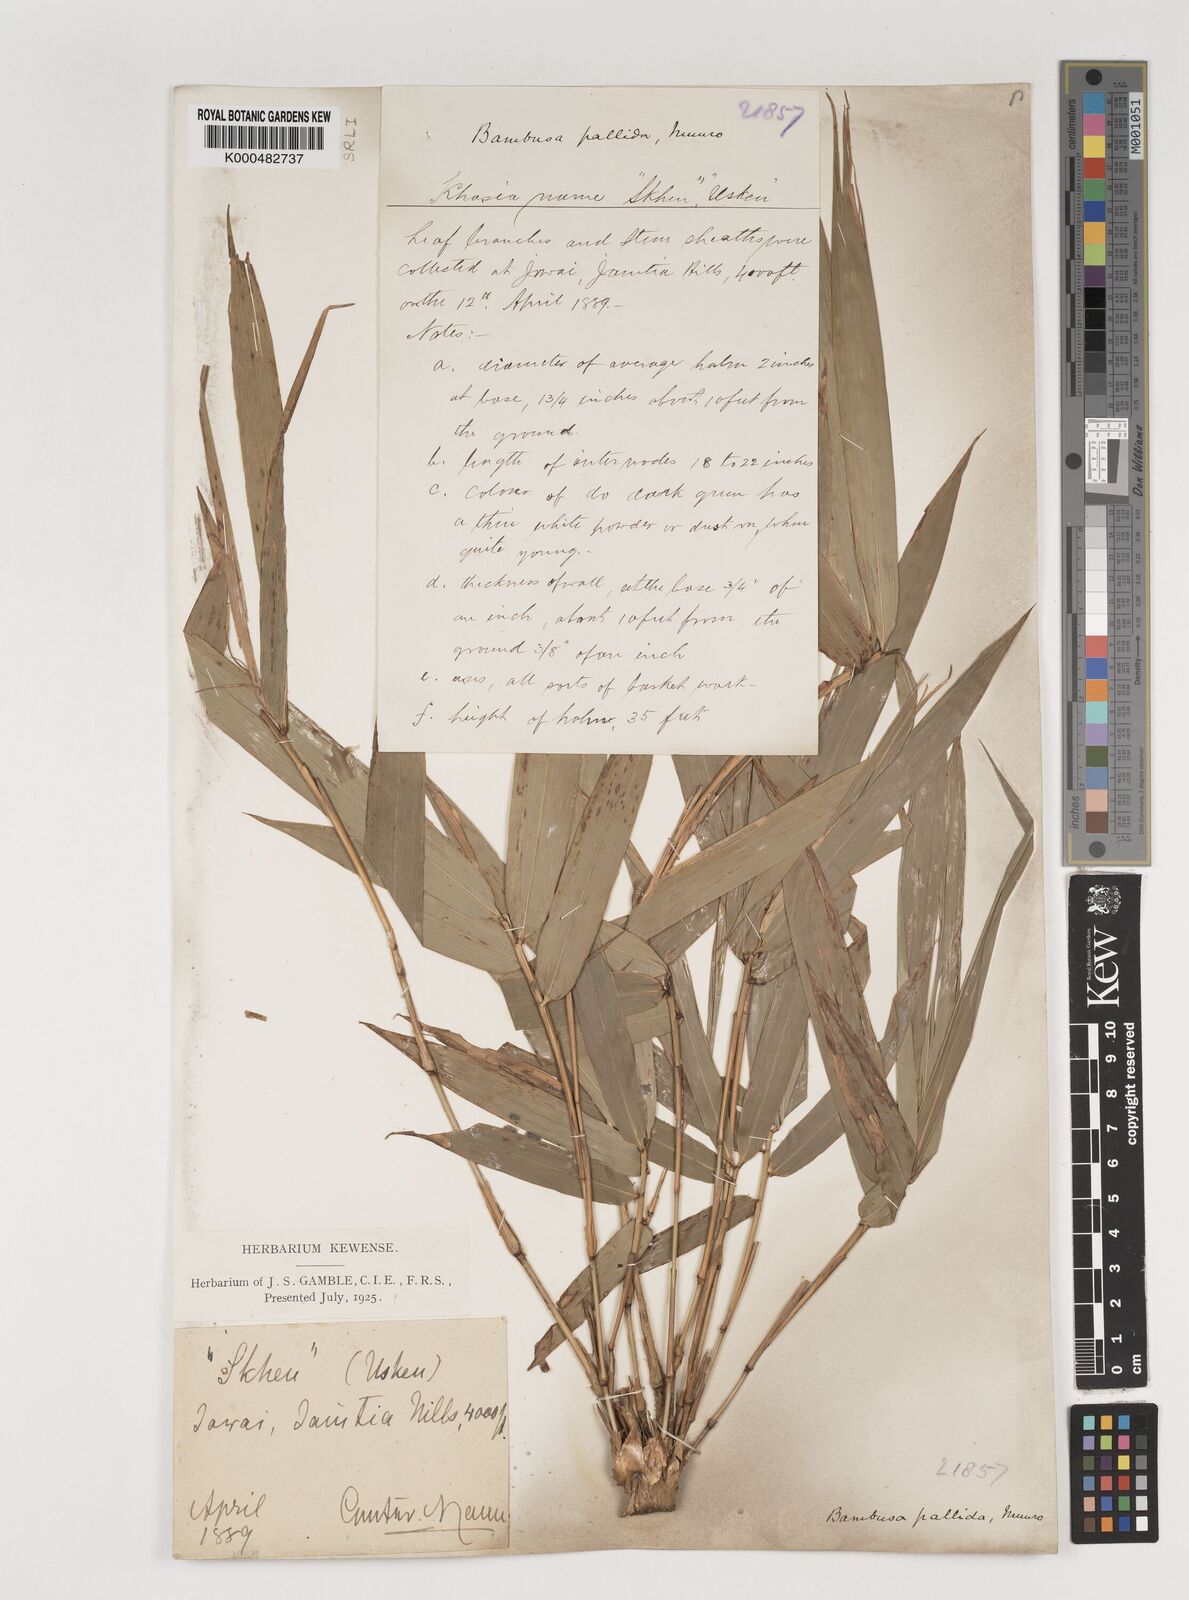 ROYAL BOTANIC GARDENS KEW
K000482737
SRLI
21857
Bambusa pallida, Munro
Khasia name "Skhen", "Usken"
Leaf branches and stem sheaths were
collected at Jowai, Jaintia Hills, 4000ft.
on the 12th. April 1889.-
Notes:-
a. diameter of average halm 2 inches
at base, 1 3/4 inches about 10 feet from
the ground
b. length of internodes 18 to 22 inches
c. colour of do dark green has
a thin white powder or dust on, when
quite young.-
d. thickness of wall, at the base 3/4" of
an inch, about 10 feet from the
ground 3/8" of an inch
e. uses, all sorts of basket work-
f. height of halm, 35 feet
HERBARIUM KEWENSE.
Herbarium of J. S. GAMBLE, C.I.E., F.R.S.,
Presented July, 1925.
"Skhen" (Usken)
Jowai, Jaintia Hills, 4000ft.
April
1889
Mann
21857
Bambusa pallida, Munro
centimeters
inches
M001051
Don Williams
Density
Royal Botanic Gardens
Kew
0 1 2 3 4 5 6 7 8 9 10
cm
copyright reserved